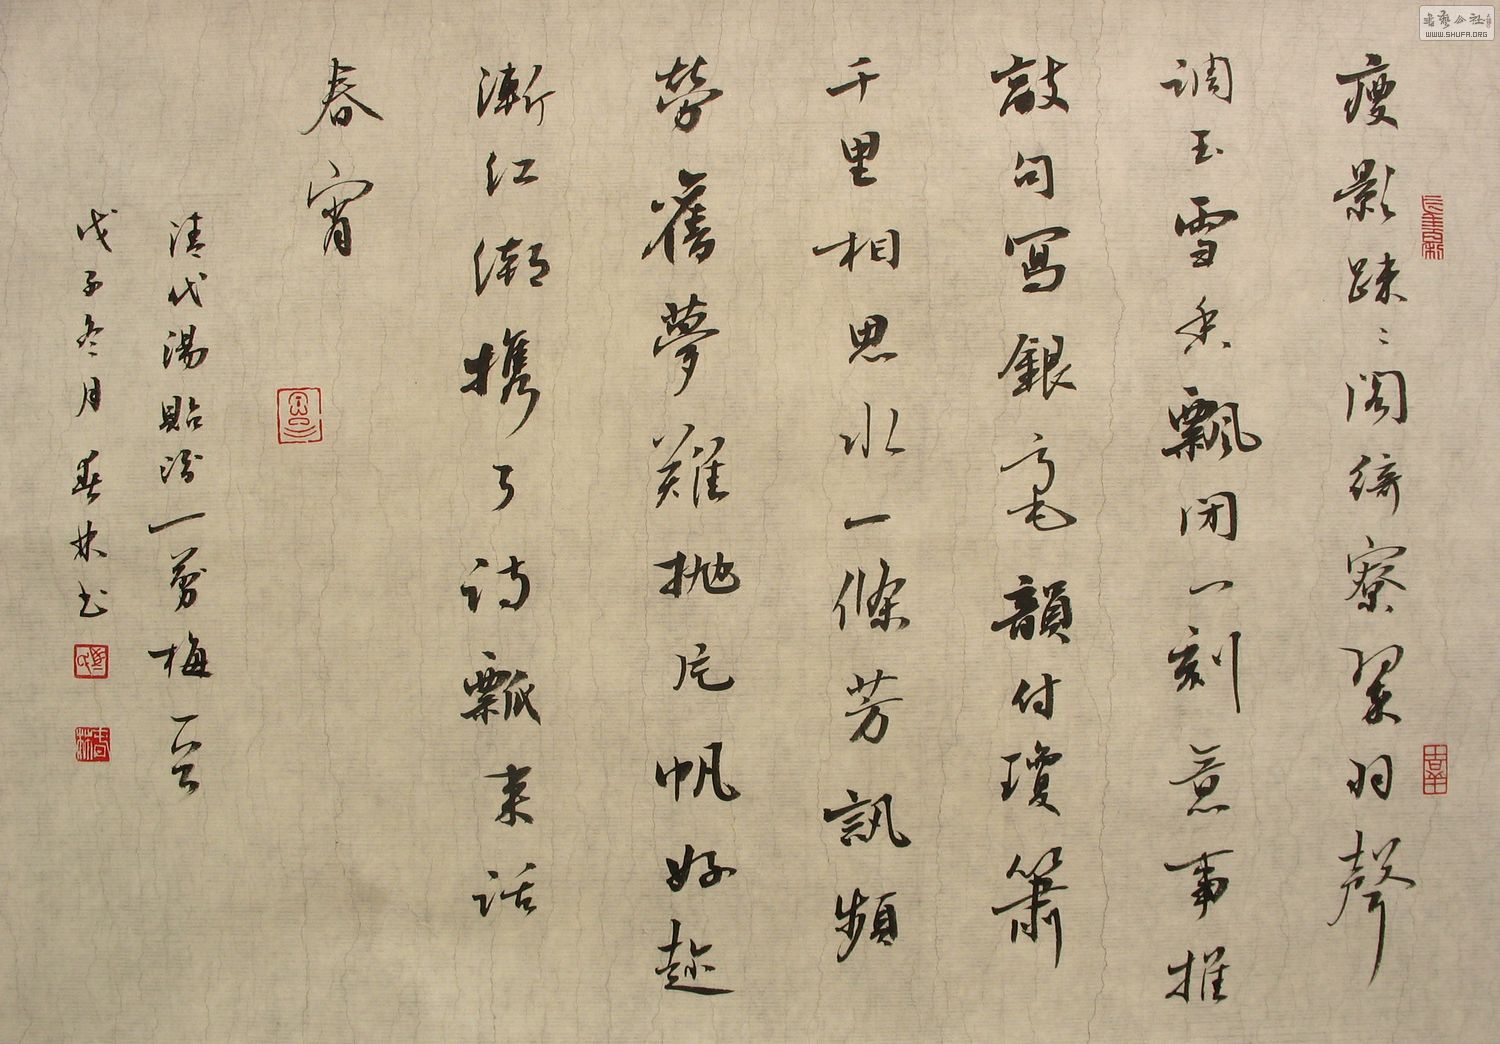 瘦影疎〻閣綺寮翠羽聲
调玉雪香飄闭一刻意事推
敲句寫銀毫韻付瓊簫
千里相思水一條芳訊頻
勞舊夢難抛片帆好趁
漸江潮携了诗瓢来话
春宵
清代湯貽汾一剪梅一首
戊子冬月春林书
春林
書藝公社
WWW.SHUFA.ORG